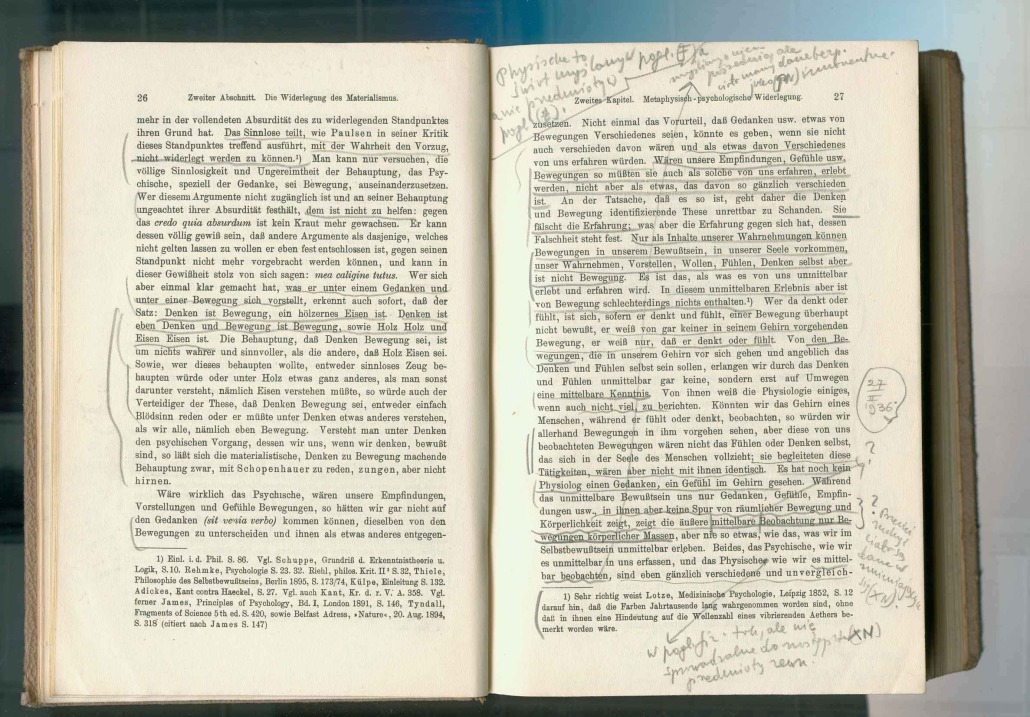 26 Zweiter Abschnitt. Die Widerlegung des Materialismus.
mehr in der vollendeten Absurdität des zu widerlegenden Standpunktes
ihren Grund hat. Das Sinnlose teilt, wie Paulsen in seiner Kritik
dieses Standpunktes treffend ausführt, mit der Wahrheit den Vorzug,
nicht widerlegt werden zu können.¹) Man kann nur versuchen, die
völlige Sinnlosigkeit und Ungereimtheit der Behauptung, das Psy-
chische, speziell der Gedanke, sei Bewegung, auseinanderzusetzen.
Wer diesem Argumente nicht zugänglich ist und an seiner Behauptung
ungeachtet ihrer Absurdität festhält, dem ist nicht zu helfen: gegen
das credo quia absurdum ist kein Kraut mehr gewachsen. Er kann
dessen völlig gewiß sein, daß andere Argumente als dasjenige, welches
nicht gelten lassen zu wollen er eben fest entschlossen ist, gegen seinen
Standpunkt nicht mehr vorgebracht werden können, und kann in
dieser Gewißheit stolz von sich sagen: mea caligine tutus. Wer sich
aber einmal klar gemacht hat, was er unter einem Gedanken und
unter einer Bewegung sich vorstellt, erkennt auch sofort, daß der
Satz: Denken ist Bewegung, ein hölzernes Eisen ist. Denken ist
eben Denken und Bewegung ist Bewegung, sowie Holz Holz und
Eisen Eisen ist. Die Behauptung, daß Denken Bewegung sei, ist
um nichts wahrer und sinnvoller, als die andere, daß Holz Eisen sei.
Sowie, wer dieses behaupten wollte, entweder sinnloses Zeug be-
haupten würde oder unter Holz etwas ganz anderes, als man sonst
darunter versteht, nämlich Eisen verstehen müßte, so würde auch der
Verteidiger der These, daß Denken Bewegung sei, entweder einfach
Blödsinn reden oder er müßte unter Denken etwas anderes verstehen,
als wir alle, nämlich eben Bewegung. Versteht man unter Denken
den psychischen Vorgang, dessen wir uns, wenn wir denken, bewußt
sind, so läßt sich die materialistische, Denken zu Bewegung machende
Behauptung zwar, mit Schopenhauer zu reden, zungen, aber nicht
hirnen.
Wäre wirklich das Psychische, wären unsere Empfindungen,
Vorstellungen und Gefühle Bewegungen, so hätten wir gar nicht auf
den Gedanken (sit venia verbo) kommen können, dieselben von den
Bewegungen zu unterscheiden und ihnen als etwas anderes entgegen-
1) Einl. i. d. Phil. S. 86. Vgl. Schuppe, Grundriß d. Erkenntnistheorie u.
Logik, S. 10. Rehmke, Psychologie S. 23. 32. Riehl, philos. Krit. II² S. 32, Thiele,
Philosophie des Selbstbewußtseins, Berlin 1895, S. 173/74, Külpe, Einleitung S. 132.
Adickes, Kant contra Haeckel, S. 27. Vgl. auch Kant, Kr. d. r. V. A. 358. Vgl.
ferner James, Principles of Psychology, Bd. I, London 1891, S. 146, Tyndall,
Fragments of Science 5th ed. S. 420, sowie Belfast Adress, »Nature«, 20. Aug. 1894,
S. 318 (citiert nach James S. 147)
Physische to
Zweites Kapitel. Metaphysisch-psychologische Widerlegung. 27
zusetzen. Nicht einmal das Vorurteil, daß Gedanken usw. etwas von
Bewegungen Verschiedenes seien, könnte es geben, wenn sie nicht
auch verschieden davon wären und als etwas davon Verschiedenes
von uns erfahren würden. Wären unsere Empfindungen, Gefühle usw.
Bewegungen so müßten sie auch als solche von uns erfahren, erlebt
werden, nicht aber als etwas, das davon so gänzlich verschieden
ist. An der Tatsache, daß es so ist, geht daher die Denken
und Bewegung identifizierende These unrettbar zu Schanden. Sie
fälscht die Erfahrung; was aber die Erfahrung gegen sich hat, dessen
Falschheit steht fest. Nur als Inhalte unserer Wahrnehmungen können
Bewegungen in unserem Bewußtsein, in unserer Seele vorkommen,
unser Wahrnehmen, Vorstellen, Wollen, Fühlen, Denken selbst aber
ist nicht Bewegung. Es ist das, als was es von uns unmittelbar
erlebt und erfahren wird. In diesem unmittelbaren Erlebnis aber ist
von Bewegung schlechterdings nichts enthalten.¹) Wer da denkt oder
fühlt, ist sich, sofern er denkt und fühlt, einer Bewegung überhaupt
nicht bewußt, er weiß von gar keiner in seinem Gehirn vorgehenden
Bewegung, er weiß nur, daß er denkt oder fühlt. Von den Be-
wegungen, die in unserem Gehirn vor sich gehen und angeblich das
Denken und Fühlen selbst sein sollen, erlangen wir durch das Denken
und Fühlen unmittelbar gar keine, sondern erst auf Umwegen
eine mittelbare Kenntnis. Von ihnen weiß die Physiologie einiges,
wenn auch nicht viel, zu berichten. Könnten wir das Gehirn eines
Menschen, während er fühlt oder denkt, beobachten, so würden wir
allerhand Bewegungen in ihm vorgehen sehen, aber diese von uns
beobachteten Bewegungen wären nicht das Fühlen oder Denken selbst,
das sich in der Seele des Menschen vollzieht; sie begleiteten diese
Tätigkeiten, wären aber nicht mit ihnen identisch. Es hat noch kein
Physiolog einen Gedanken, ein Gefühl im Gehirn gesehen. Während
das unmittelbare Bewußtsein uns nur Gedanken, Gefühle, Empfin-
dungen usw., in ihnen aber keine Spur von räumlicher Bewegung und
Körperlichkeit zeigt, zeigt die äußere mittelbare Beobachtung nur Be-
wegungen körperlicher Massen, aber nie so etwas, wie das, was wir im
Selbstbewußtsein unmittelbar erleben. Beides, das Psychische, wie wir
es unmittelbar in uns erfassen, und das Physische wie wir es mittel-
bar beobachten, sind eben gänzlich verschiedene und unvergleich-
1) Sehr richtig weist Lotze, Medizinische Psychologie, Leipzig 1852, S. 12
darauf hin, daß die Farben Jahrtausende lang wahrgenommen worden sind, ohne
daß in ihnen eine Hindeutung auf die Wellenzahl eines vibrierenden Aethers be-
merkt worden wäre.
27
II
1936
?
?